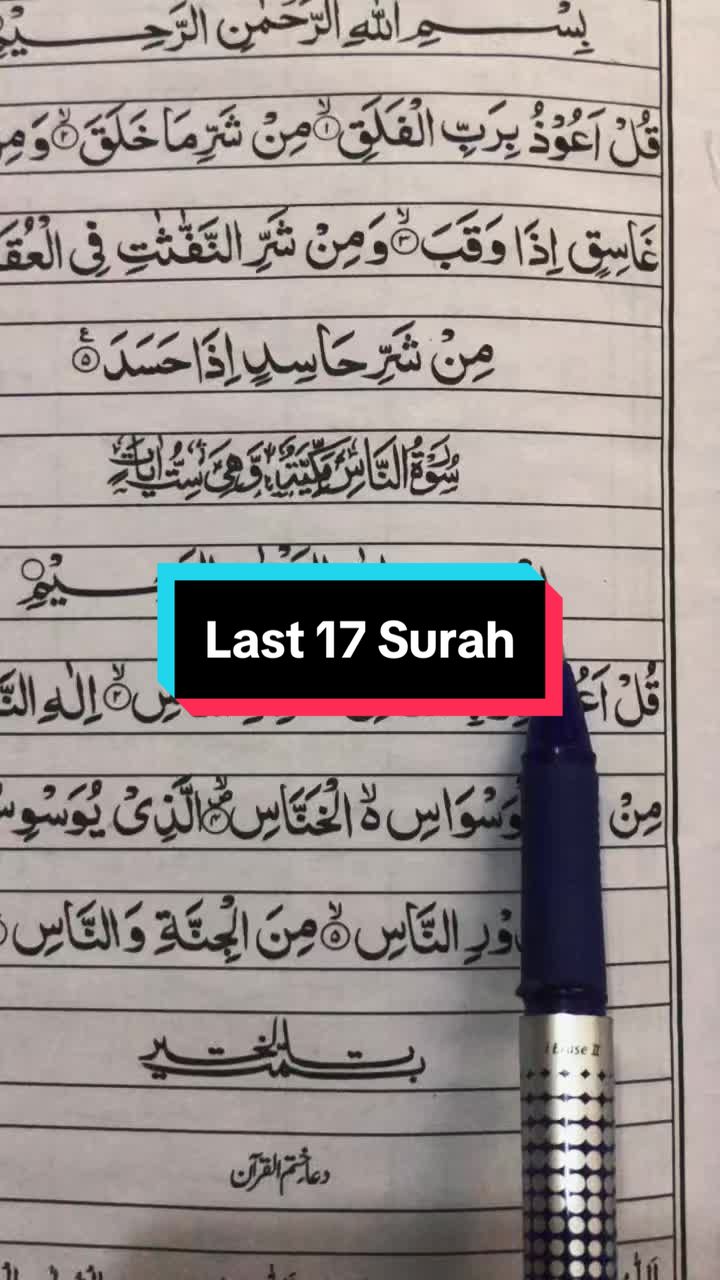 بِسْمِ اللهِ الرَّحْمٰنِ الرَّحِيْمِ
قُلْ اَعُوْذُ بِرَبِّ الْفَلَقِ ۙ﴿۱﴾ مِنْ شَرِّ مَا خَلَقَ ۙ﴿۲﴾ وَمِنْ
غَاسِقٍ اِذَا وَقَبَ ۙ﴿۳﴾ وَمِنْ شَرِّ النَّفّٰثٰتِ فِی الْعُقَ
مِنْ شَرِّ حَاسِدٍ اِذَا حَسَدَ ﴿۵﴾ ع
سُوْرَةُ النَّاسِ مَكِّيَّةٌ وَّهِيَ سِتُّ اٰيَاتٍ
Last 17 Surah
قُلْ اَعُ ۙ﴿۲﴾ اِلٰهِ النَّ
مِنْ وَسْوَاسِ ۙ۬ الْخَنَّاسِ ﴿۴﴾ الَّذِیْ یُوَسْوِسُ
دُوْرِ النَّاسِ ۙ﴿۵﴾ مِنَ الْجِنَّةِ وَالنَّاسِ
تمت بالخير
دعاء ختم القرآن